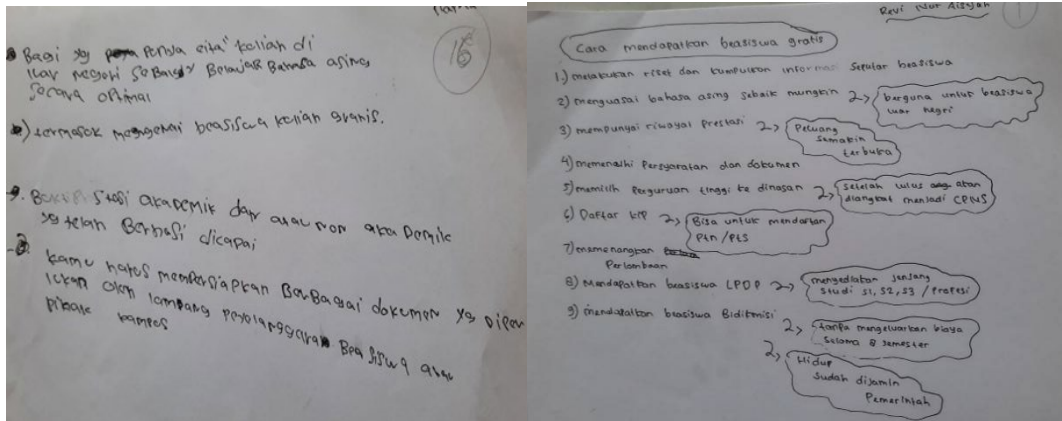 16
Bagi yg punya cita" kuliah di
luar negeri sebaiknya Belajar Bahasa asing
secara optimal
termasuk mengenai beasiswa kuliah gratis.
akademik dan atau non akademik
yg telah Berhasil dicapai
kamu harus mempersiapkan Berbagai dokumen yg Diper
lukan oleh penyelenggara Beasiswa atau
pihak kampus
Revi Nur Aisyah
1
Cara mendapatkan beasiswa gratis
1.) melakukan riset dan kumpulkan informasi seputar beasiswa
2) menguasai bahasa asing sebaik mungkin
berguna untuk beasiswa
luar negri
3) mempunyai riwayat prestasi
Peluang
semakin
terbuka
4) memenuhi persyaratan dan dokumen
5) memilih perguruan tinggi kedinasan
setelah lulus akan
diangkat menjadi CPNS
6) Daftar KIP
Bisa untuk mendaftar
Ptn / PtS
7) memenangkan
Perlombaan
8) Mendapatkan beasiswa LPDP
mengediakan jenjang
studi S1, S2, S3 / Profesi
9) mendapatkan beasiswa Bidikmisi
tanpa mengeluarkan biaya
selama 8 semester
Hidup
sudah dijamin
Pemerintah